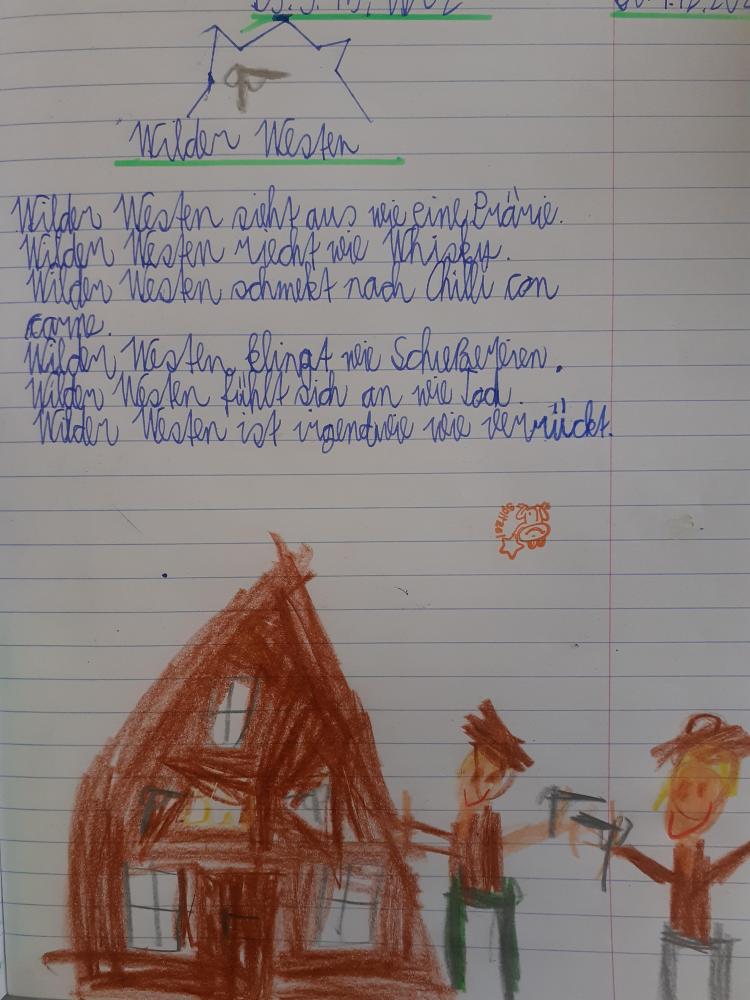 Wilder Westen
Wilder Westen sieht aus wie eine Prärie.
Wilder Westen riecht wie Whisky.
Wilder Westen schmekt nach Chilli con
carne.
Wilder Westen klingt wie Schießereien.
Wilder Westen fühlt sich an wie Tod.
Wilder Westen ist irgendwie wie verrückt.
Spitze!